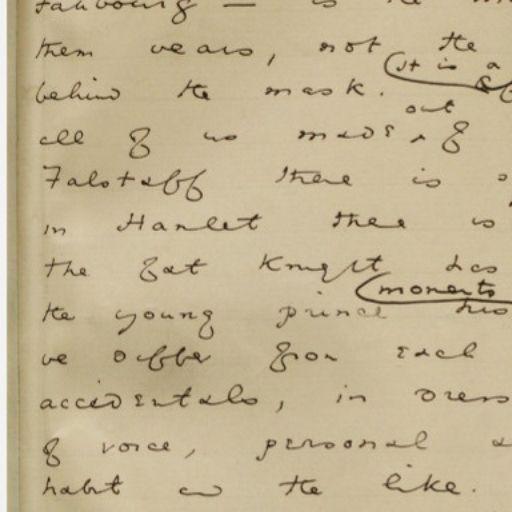 them wears, not the
(It is a
behind the mask.
out
all of us made ^ of
Falstaff there is
in Hamlet there is
the fat knight has
(moments
the young prince his
we differ from each
accidentals, in dress
of voice, personal a
habit and the like.